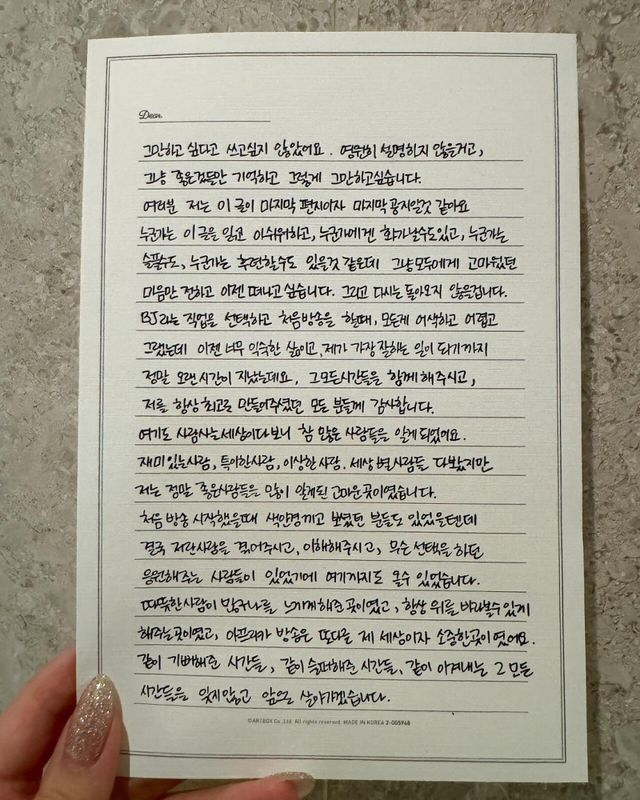 Dear.
그만하고 싶다고 쓰고싶지 않았어요. 영원히 설명하지 않을거고,
그냥 좋은것들만 기억하고 그렇게 그만하고싶습니다.
여러분 저는 이 글이 마지막 편지이자 마지막 공지일것 같아요
누군가는 이 글을 읽고 아쉬워하고, 누군가에겐 화가날수도있고, 누군가는
슬플수도, 누군가는 후련할수도 있을것 같은데 그냥 모두에게 고마웠던
마음만 전하고 이젠 떠나고 싶습니다. 그리고 다시는 돌아오지 않을겁니다.
BJ라는 직업을 선택하고 처음방송을 할때, 모든게 어색하고 어렵고
그랬는데 이젠 너무 익숙한 삶이고, 제가 가장 잘하는 일이 되기까지
정말 오랜시간이 지났는데요, 그모든시간들을 함께해주시고,
저를 항상 최고로 만들어주셨던 모든 분들께 감사합니다.
여기도 사람사는세상이다보니 참 많은 사람들을 알게 되었어요.
재미있는사람, 특이한사람, 이상한사람. 세상 별사람들 다봤지만
저는 정말 좋은사람들을 많이 알게된 고마운곳이였습니다.
처음 방송 시작했을때 색안경끼고 보셨던 분들도 있었을텐데
결국 저란사람을 겪어주시고, 이해해주시고, 무슨 선택을 하던
응원해주는 사람들이 있었기에 여기까지도 올수 있었습니다.
따뜻한사람이 많구나를 느끼게해준 곳이였고, 항상 위를 바라볼수있게
해주는곳이였고, 아프리카 방송은 또다른 제 세상이자 소중한곳이였어요.
같이 기뻐해준 시간들, 같이 슬퍼해준 시간들, 같이 아껴내는 그 모든
시간들을 잊지않고 앞으로 살아가겠습니다.
©ARTBOX Co.,Ltd. All rights reserved. MADE IN KOREA 2-005948